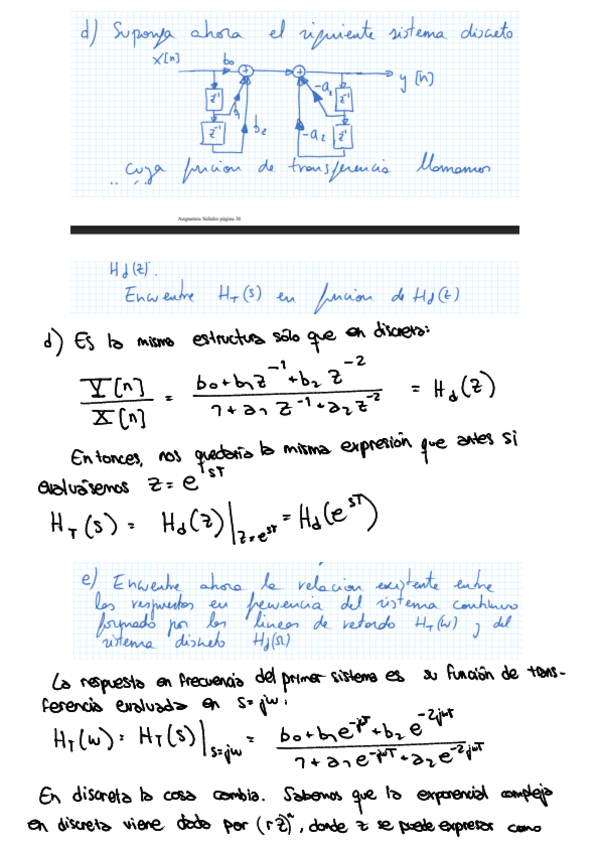 d) Suponga ahora el siguiente sistema discreto
x[n] b₀ + + y[n]
z⁻¹ b₁ -a₁ z⁻¹
z⁻¹ b₂ -a₂ z⁻¹
cuya funcion de transferencia llamamos
Asignatura Señales página 36
Hd(z).
Encuentre H_T(s) en funcion de Hd(z)
d) Es la misma estructura sólo que en discreta:
Y[n]/X[n] = (b₀+b₁z⁻¹+b₂z⁻²)/(1+a₁z⁻¹+a₂z⁻²) = H_d(z)
Entonces, nos quedaría la misma expresión que antes si
evaluásemos z = e^{sT}
H_T(s) = H_d(z)|_{z=e^{sT}} = H_d(e^{sT})
e) Encuentre ahora la relacion existente entre
las respuestas en frecuencia del sistema continuo
formado por las lineas de retardo H_T(ω) y del
sistema discreto Hd(Ω)
La respuesta en frecuencia del primer sistema es su función de trans-
ferencia evaluada en s=jω:
H_T(ω) = H_T(s)|_{s=jω} = (b₀+b₁e^{-jωT}+b₂e^{-2jωT})/(1+a₁e^{-jωT}+a₂e^{-2jωT})
En discreta la cosa cambia. Sabemos que la exponencial compleja
en discreta viene dada por (rz)ⁿ, donde z se puede expresar como